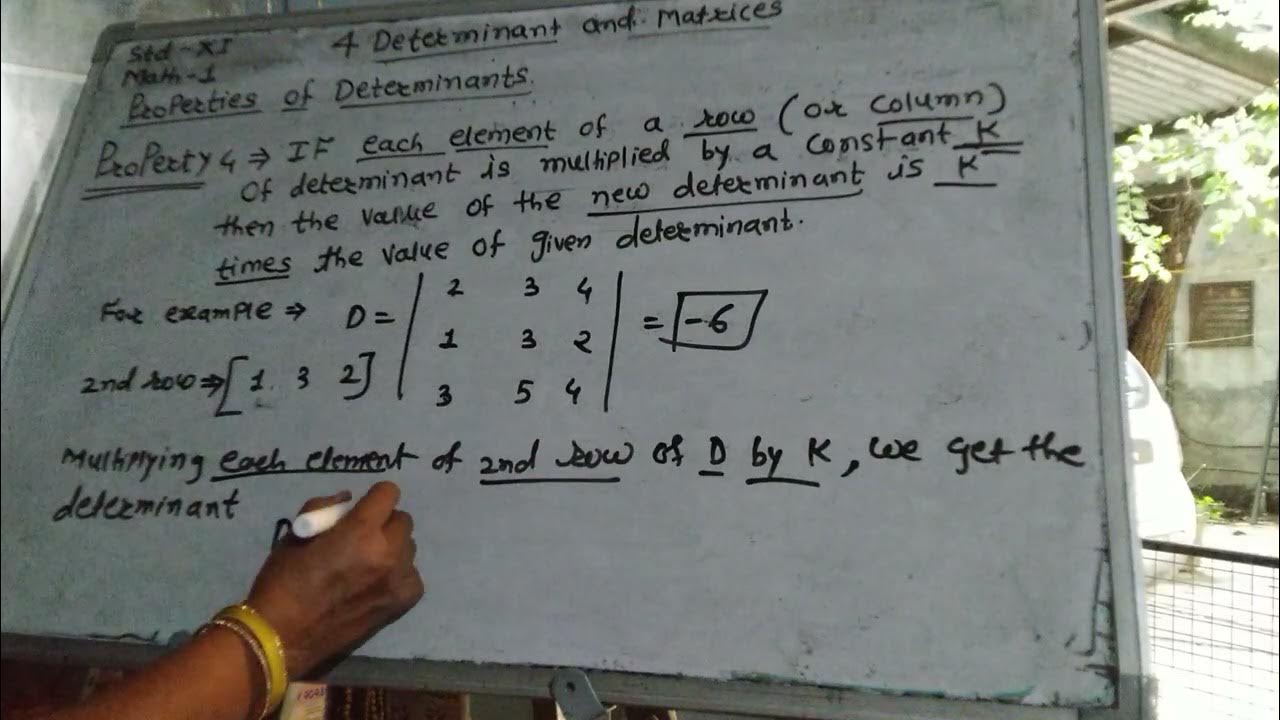 Std - XI
4 Determinant and Matrices
Math-1
Properties of Determinants.
Property 4 ⇒ IF each element of a row (or column)
of determinant is multiplied by a constant K
then the value of the new determinant is K
times the value of given determinant.
For example ⇒ D = | 2 3 4 |
| 1 3 2 | = -6
| 3 5 4 |
2nd row ⇒ [1 3 2]
Multiplying each element of 2nd row of D by K, we get the
determinant
D